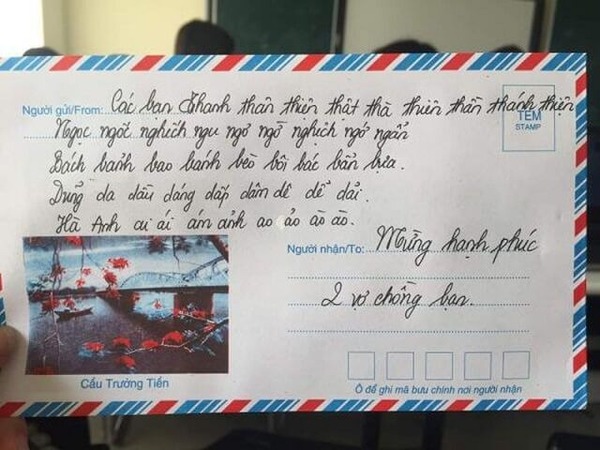 Người gửi/From: Các bạn Thanh thân thiện thật thà thiên thần thánh thiện
TEM
STAMP
Ngọc ngốt nghếch ngu ngơ ngờ nghịch ngớ ngẩn
Bách bánh bao bánh bèo bôi bác bẩn bựa.
Dung da dầu dáng dấp dâm dê dễ dãi.
Hà Anh ai ái ám ảnh ao ảo ào ào.
Người nhận/To: Mừng hạnh phúc
2 vợ chồng bạn.
Cầu Trường Tiền
Ô để ghi mã bưu chính nơi người nhận